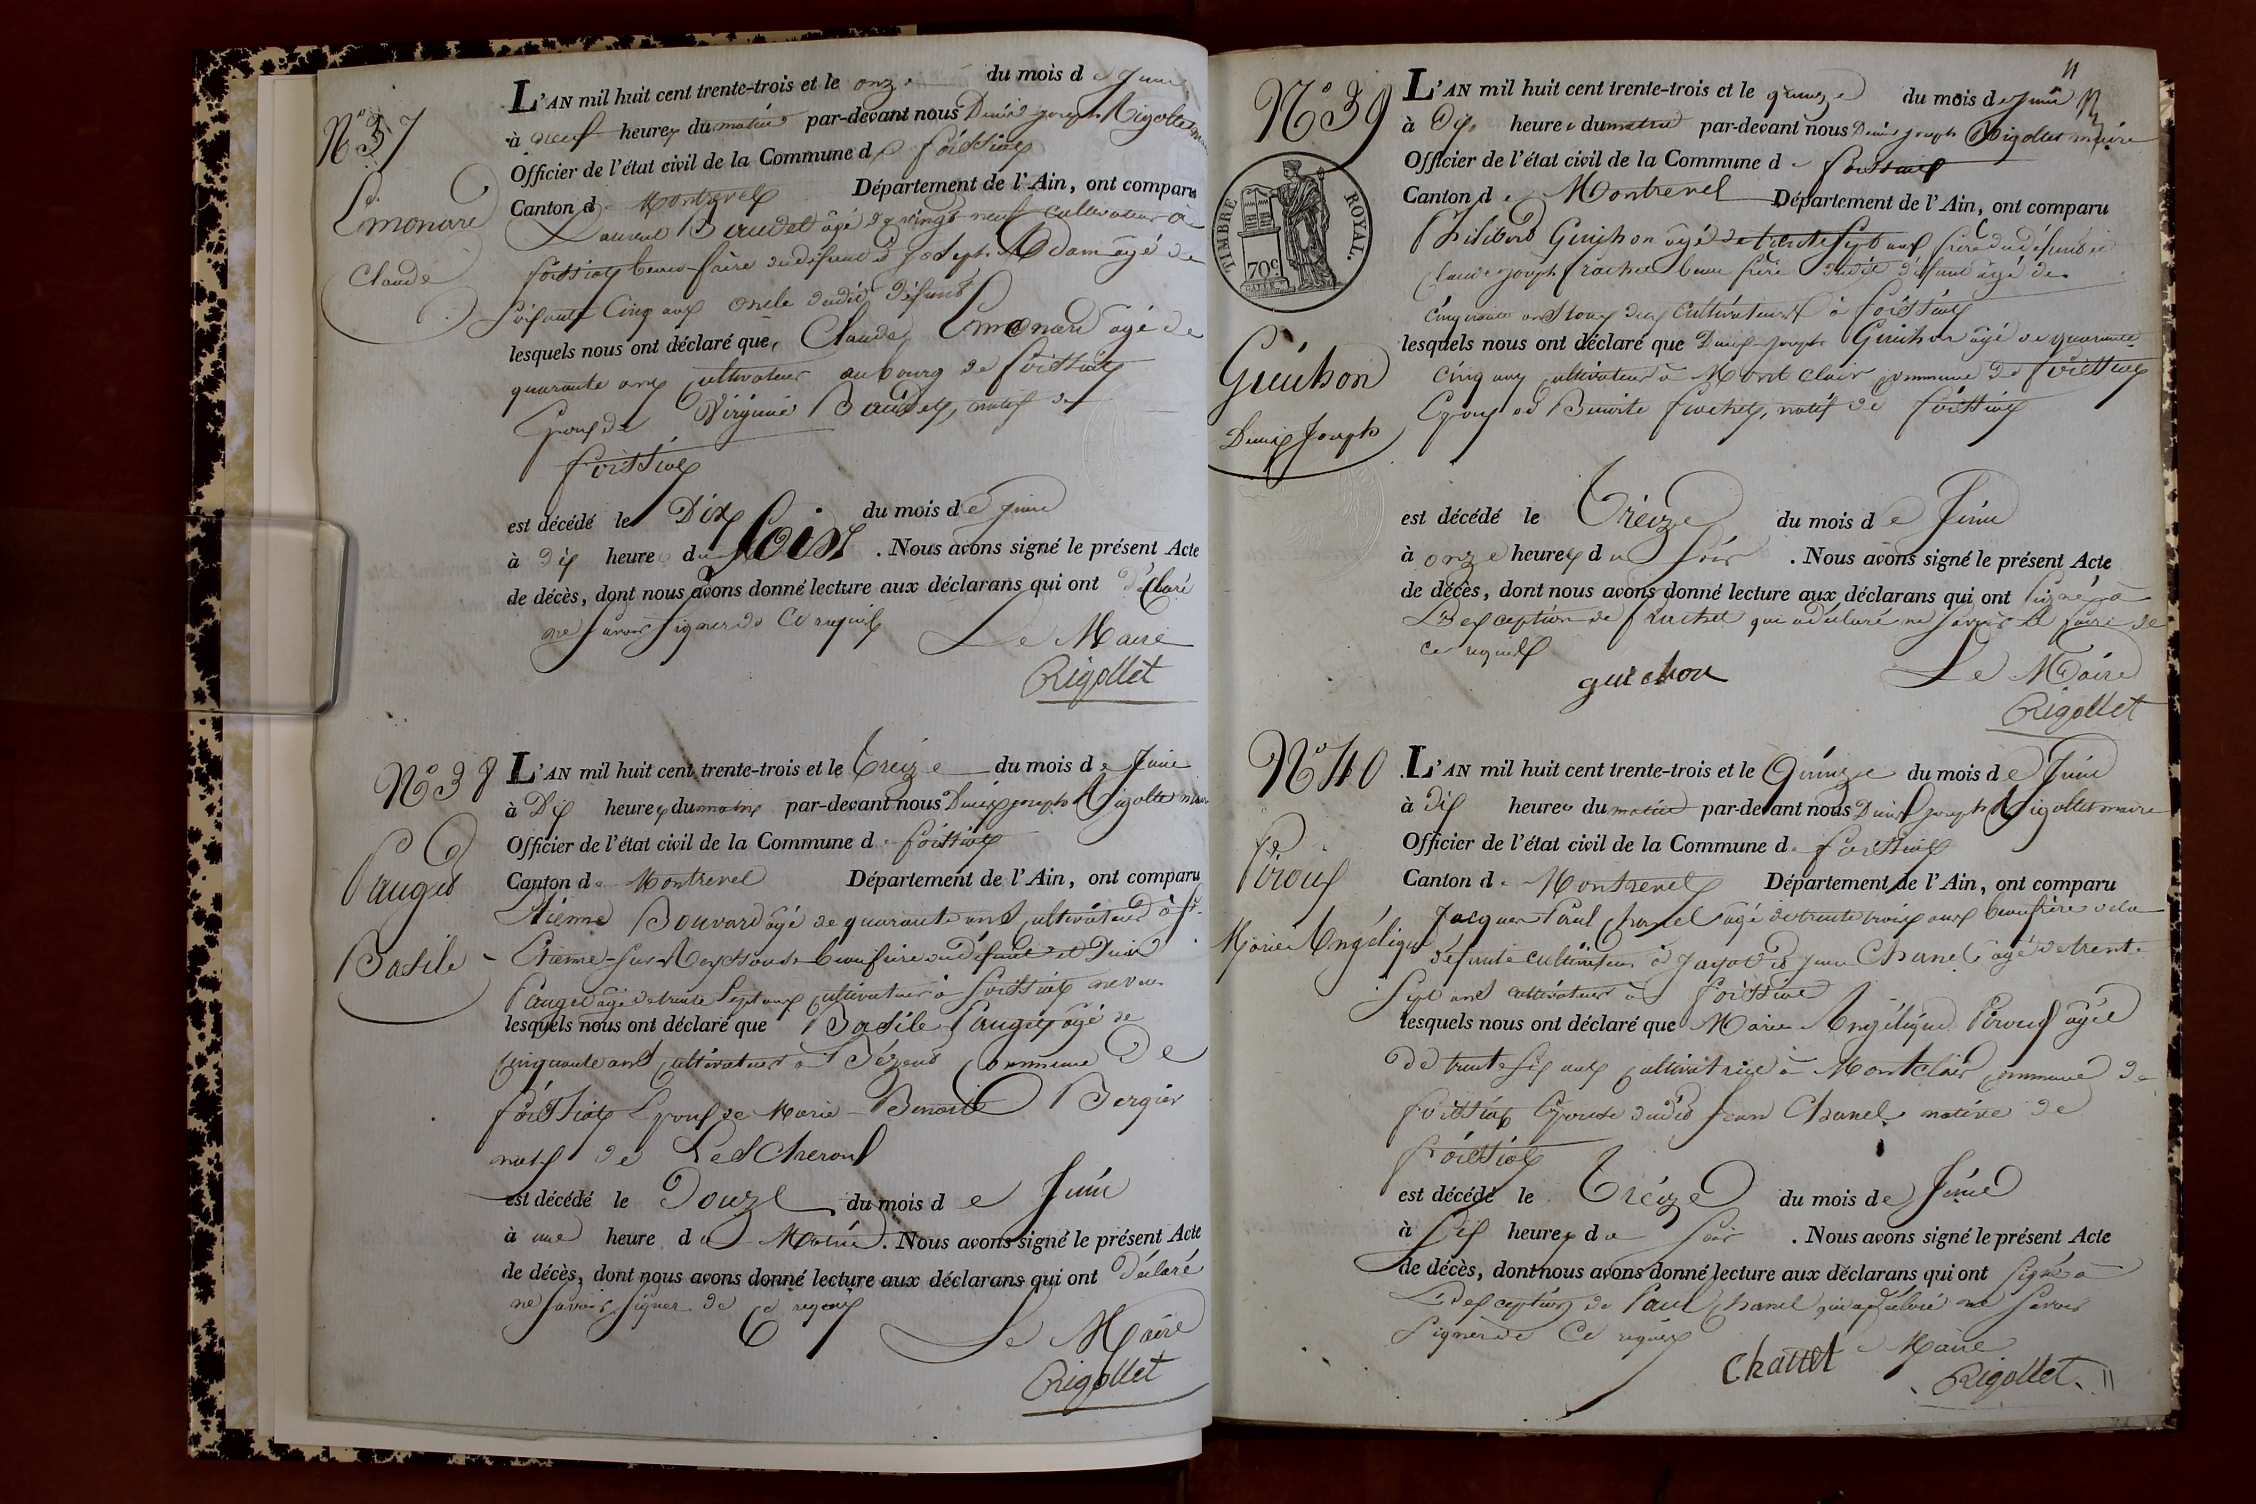 N° 37
Emonard
Claude
L'AN mil huit cent trente-trois et le onze du mois de Juin
à neuf heures du matin par-devant nous Denis Joseph Rigollet
Officier de l'état civil de la Commune de foissiat
Canton de Montrevel Département de l'Ain, ont comparu
Laurent Baudet âgé de vingt neuf cultivateur à
foissiat beau-frère du défunt et Joseph Adam âgé de
soixante cinq ans oncle dudit défunt
lesquels nous ont déclaré que Claude Emonard âgé de
quarante ans cultivateur au bourg de foissiat
Epoux de Virginie Baudet, natif de
foissiat
est décédé le Dix du mois de Juin
à dix heures du soir. Nous avons signé le présent Acte
de décès, dont nous avons donné lecture aux déclarans qui ont déclaré
ne savoir signer de ce requis
Le Maire
Rigollet
N° 38
Pauget
Basile
L'AN mil huit cent trente-trois et le treize du mois de Juin
à Dix heures du matin par-devant nous Denis joseph Rigollet maire
Officier de l'état civil de la Commune de foissiat
Canton de Montrevel Département de l'Ain, ont comparu
Etienne Bouvard âgé de quarante ans cultivateur à St
Etienne-sur-Reyssouze beaufrère du défunt et Denis
Pauget âgé de trente sept ans cultivateur à foissiat neveu
lesquels nous ont déclaré que Basile Pauget âgé de
cinquante ans cultivateur à commune de
foissiat Epoux de Marie-Benoite Bergier
natif de Lescheroux
est décédé le Douze du mois de Juin
à une heure du Matin. Nous avons signé le présent Acte
de décès, dont nous avons donné lecture aux déclarans qui ont déclaré
ne savoir signer de ce requis
Le Maire
Rigollet
11
N° 39
TIMBRE ROYAL
70c
Guichon
Denis Joseph
L'AN mil huit cent trente-trois et le quinze du mois de Juin
à dix heures du matin par-devant nous Denis joseph Rigollet maire
Officier de l'état civil de la Commune de foissiat
Canton de Montrevel Département de l'Ain, ont comparu
Philibert Guichon âgé de trente sept ans frère du défunt et
Claude joseph frachet beau frère dudit défunt âgé de
cinquante ans tous deux cultivateurs à foissiat
lesquels nous ont déclaré que Denis joseph Guichon âgé de quarante
cinq ans cultivateur à Montclair commune de foissiat
Epoux de Benoite frachet, natif de foissiat
est décédé le Treize du mois de Juin
à onze heures du soir. Nous avons signé le présent Acte
de décès, dont nous avons donné lecture aux déclarans qui ont signé à
L'exception de frachet qui a déclaré ne savoir le faire de
ce requis
guichon
Le Maire
Rigollet
N° 40
Piroux
Marie Angélique
L'AN mil huit cent trente-trois et le Quinze du mois de Juin
à dix heures du matin par-devant nous Denis joseph Rigollet maire
Officier de l'état civil de la Commune de foissiat
Canton de Montrevel Département de l'Ain, ont comparu
Jacques Paul Chanel âgé de trente trois ans beaufrère de la
défunte cultivateur à Jayat et jean Chanel âgé de trente
sept ans cultivateur à foissiat
lesquels nous ont déclaré que Marie Angélique Piroux âgée
de trente six ans cultivatrice à Montclair commune de
foissiat Epouse dudit Jean Chanel native de
foissiat
est décédé le Treize du mois de Juin
à six heures du soir. Nous avons signé le présent Acte
de décès, dont nous avons donné lecture aux déclarans qui ont signé à
L'exception de Paul Chanel qui a déclaré ne savoir
signer de ce requis
Chanel
Maire
Rigollet
11